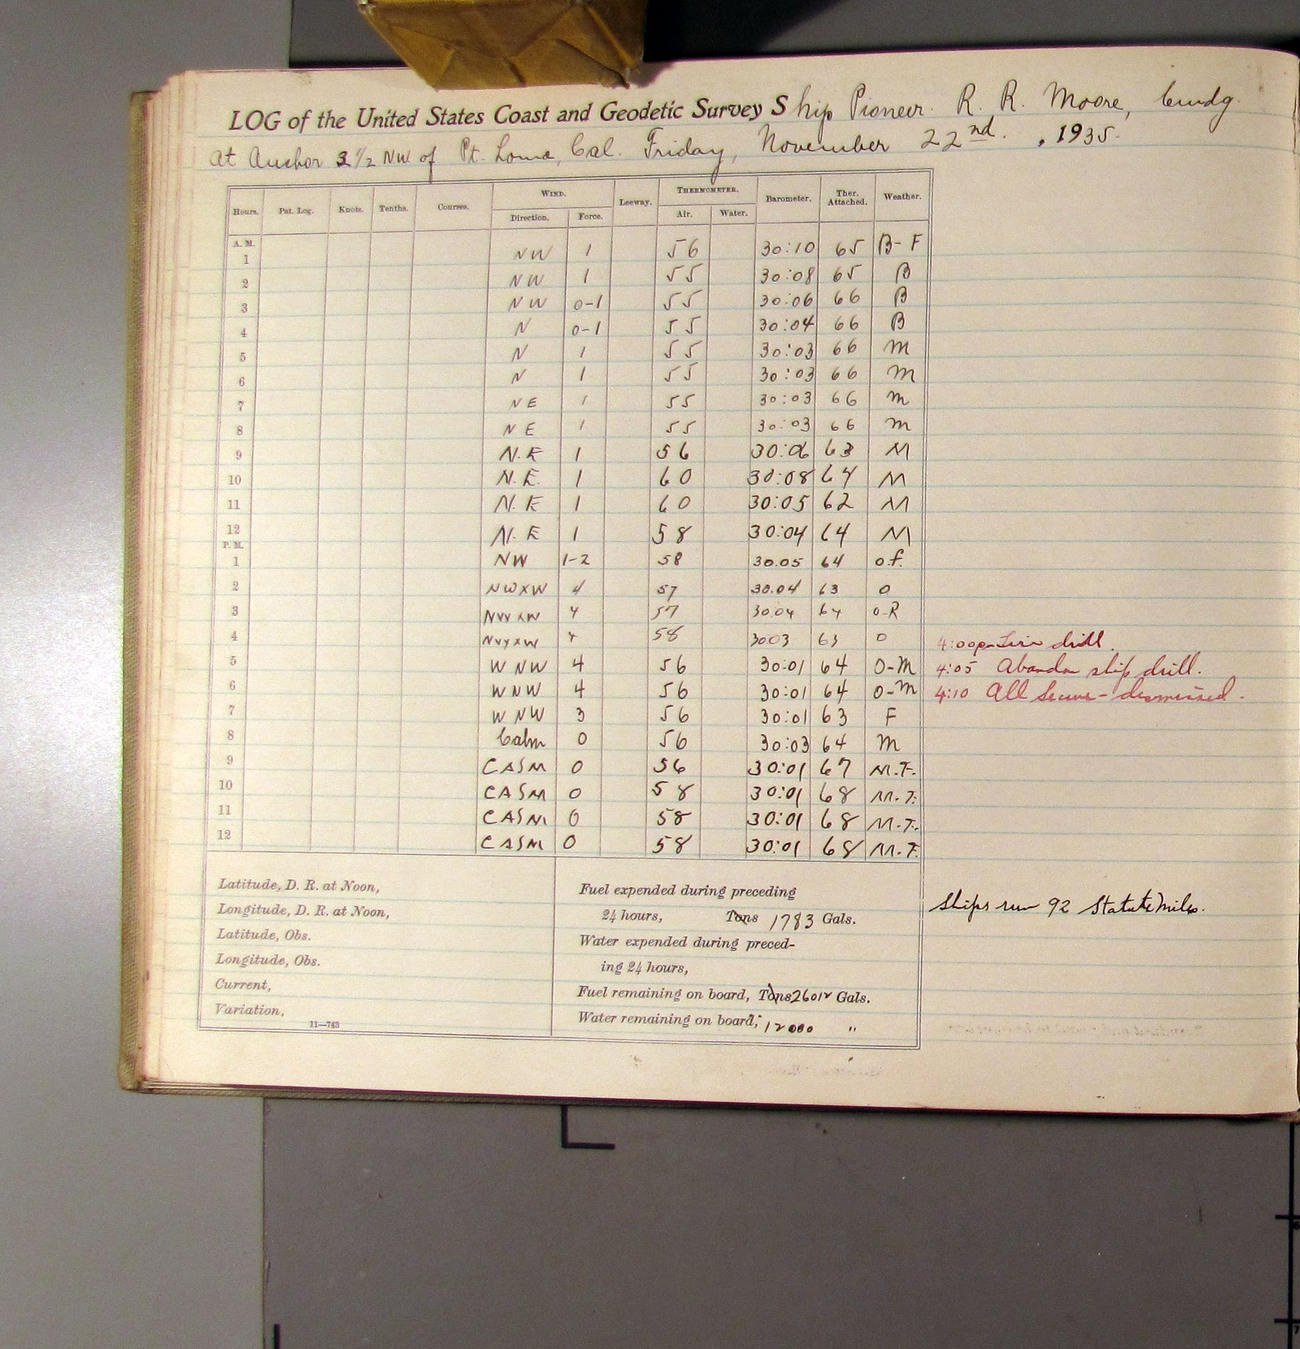 LOG of the United States Coast and Geodetic Survey Ship Pioneer. R. R. Moore, Cmdg.
At Anchor 3 1/2 NW of Pt. Loma, Cal. Friday, November 22nd. , 1935.
Hours. Pat. Log. Knots. Tenths. Courses. WIND. Leeway. THERMOMETER. Barometer. Ther. Attached. Weather.
Direction. Force. Air. Water.
A. M.
1 NW 1 56 30:10 65 B-F
2 NW 1 55 30:08 65 B
3 NW 0-1 55 30:06 66 B
4 N 0-1 55 30:04 66 B
5 N 1 55 30:03 66 m
6 N 1 55 30:03 66 m
7 NE 1 55 30:03 66 m
8 NE 1 55 30:03 66 m
9 N.E 1 56 30:06 63 M
10 N.E. 1 60 30:08 64 M
11 N.E 1 60 30:05 62 M
12 N.E 1 58 30:04 64 M
P. M.
1 NW 1-2 58 30.05 64 o.f.
2 NWxW 4 57 30.04 63 o
3 NWxW 4 57 30.04 64 o-R
4 NWxW 4 58 30.03 63 o 4:00pm Fire drill.
5 WNW 4 56 30:01 64 O-M 4:05 Abandon ship drill.
6 WNW 4 56 30:01 64 O-M 4:10 All secure - dismissed.
7 WNW 3 56 30:01 63 F
8 Calm 0 56 30:03 64 m
9 CALM 0 56 30:01 67 M.F.
10 CALM 0 58 30:01 68 M.F.
11 CALM 0 58 30:01 68 M.F.
12 CALM 0 58 30:01 68 M.F.
Latitude, D. R. at Noon,
Longitude, D. R. at Noon,
Latitude, Obs.
Longitude, Obs.
Current,
Variation,
11—743
Fuel expended during preceding
24 hours, Tons 1783 Gals.
Water expended during preced-
ing 24 hours,
Fuel remaining on board, Tons 26012 Gals.
Water remaining on board, 12000 "
Ships run 92 Statute Miles.